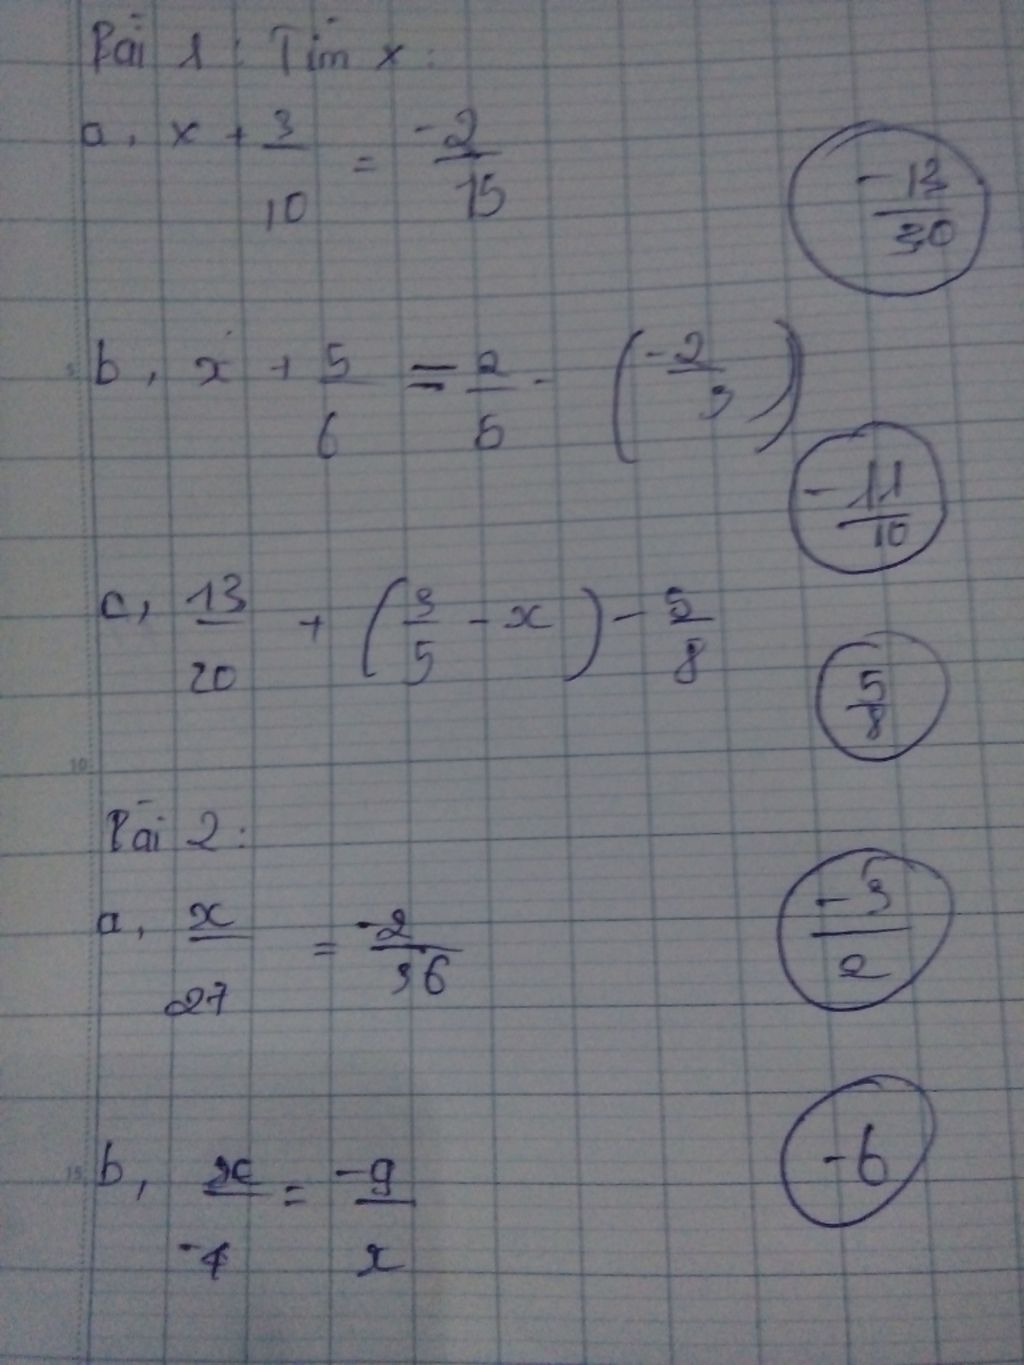 Bài 1 : Tìm x :
a, x + 3/10 = -2/15
-13/30
b, x + 5/6 = 2/5 - (-2/3)
-11/10
c, 13/20 + (3/5 - x) - 5/8
5/8
Bài 2 :
a, x/27 = -2/36
-3/2
b, x/-4 = -9/x
-6